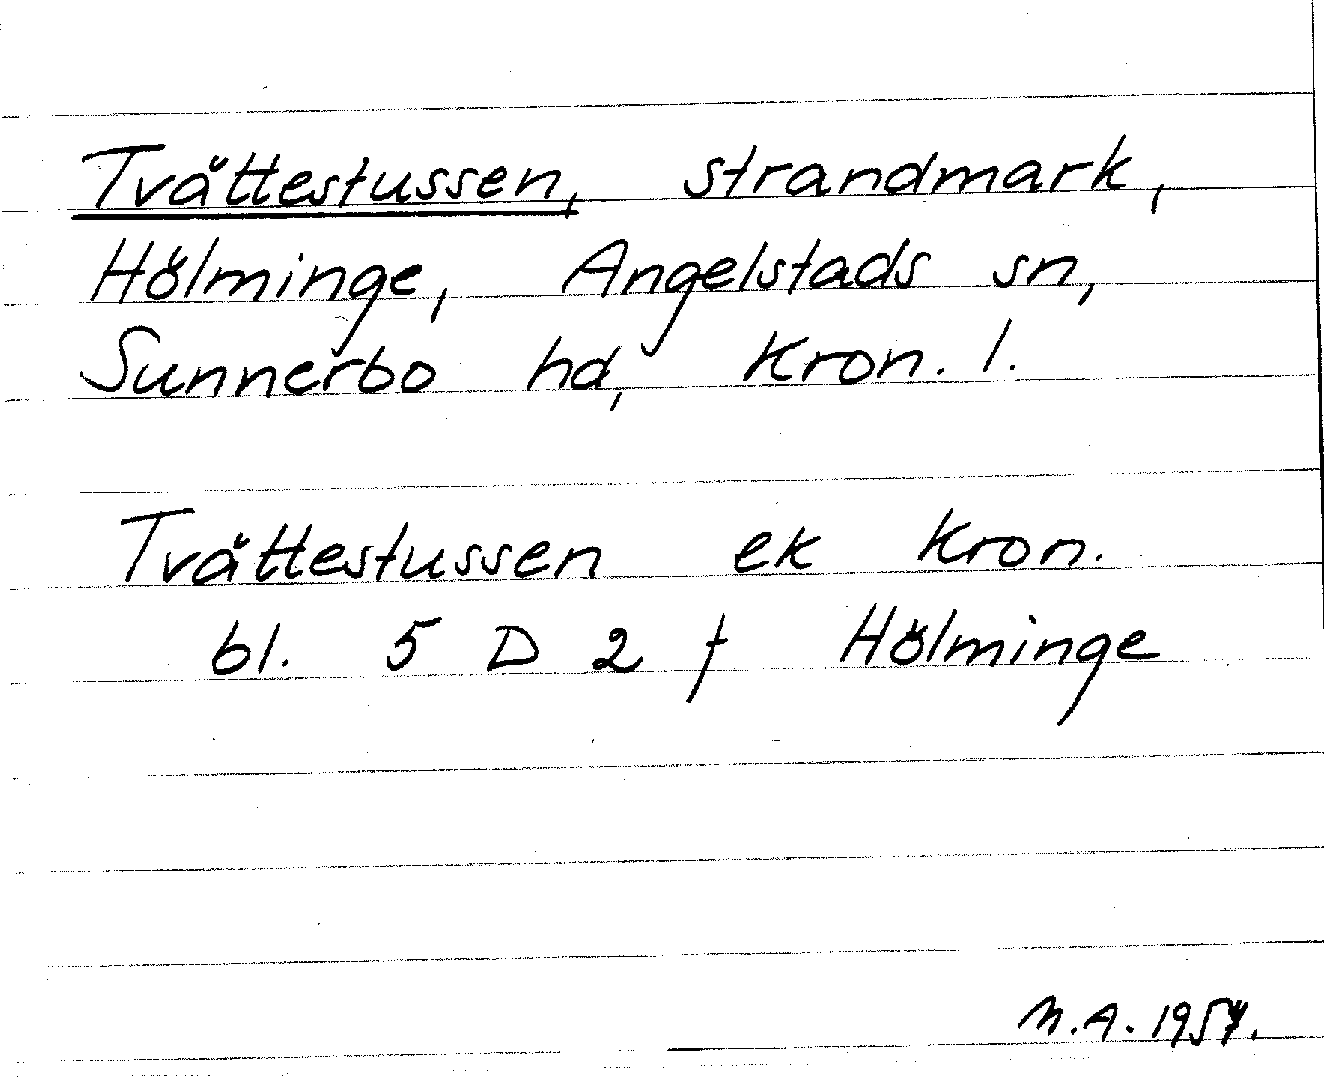 Tvättestussen, strandmark,
Hölminge, Angelstads sn,
Sunnerbo hd, Kron. l.
Tvättestussen ek Kron.
bl. 5 D 2 f Hölminge
M.A. 1954.